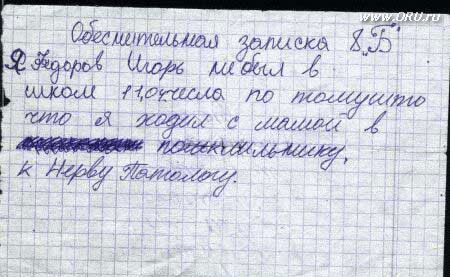 www.ORU.ru
Обеснительная записка 8 „Б"
Я Федоров Игорь небыл в
школ 11,04 числа по томушто
что я ходил с мамой в
к Нерву Патологу.